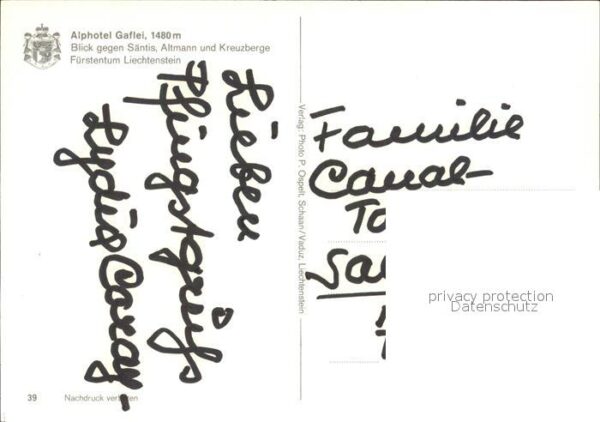 Alphotel Gaflei, 1480 m
Blick gegen Säntis, Altmann und Kreuzberge
Fürstentum Liechtenstein
Lieben
Pfingstgruß
Lydia
Verlag: Photo P. Ospelt, Schaan/Vaduz, Liechtenstein
Familie
privacy protection
Datenschutz
39 Nachdruck verboten